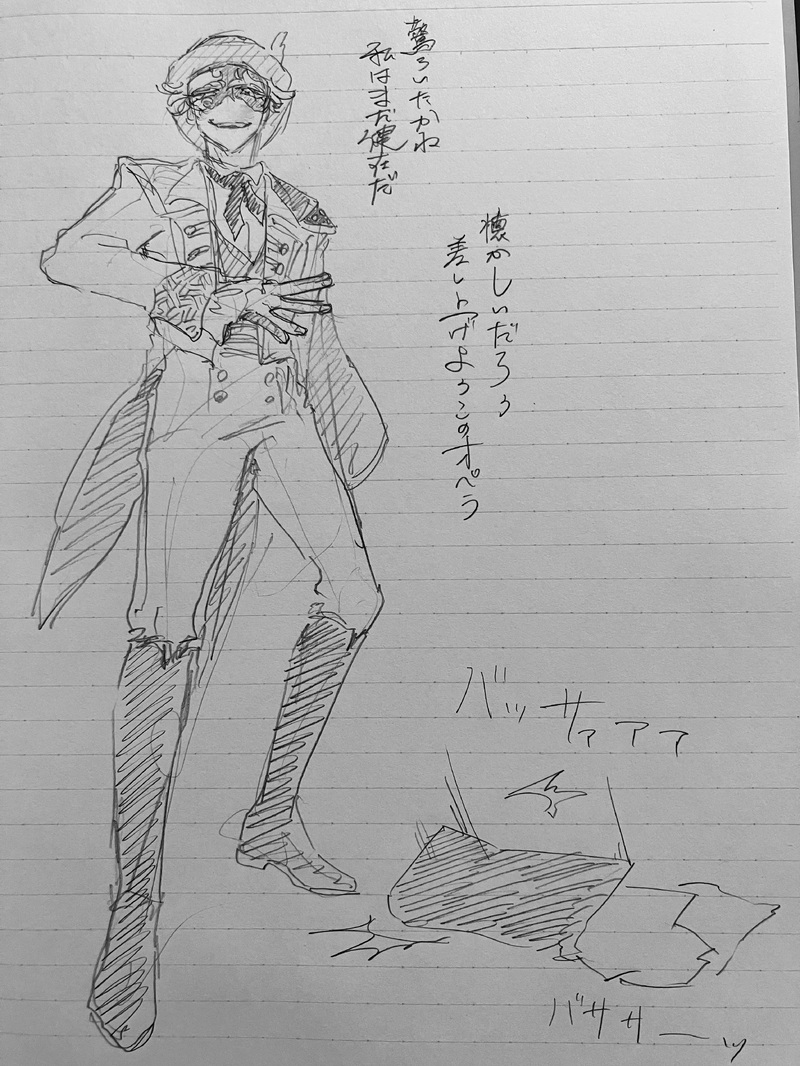 驚ろいたかね
私はまだ健在だ
懐かしいだろう
差し上げようこのオペラ
バッサァァァ
バササーッ